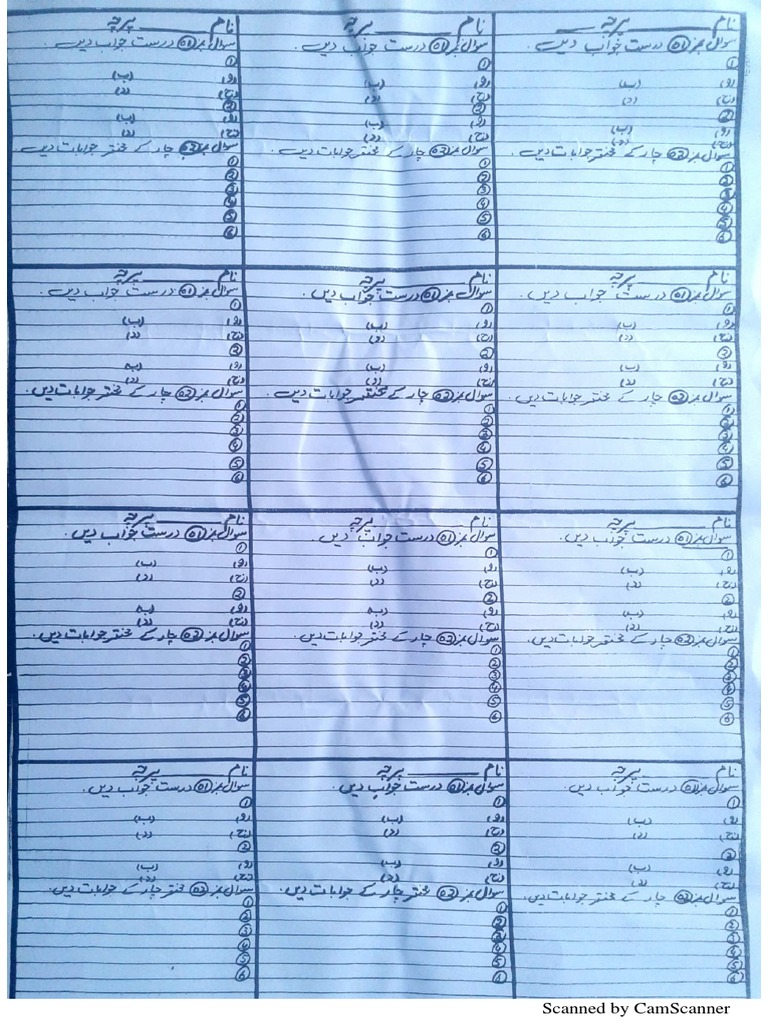 نام ______ پرچہ ______
سوال نمبر 01 درست جواب دیں۔
①
(ا) (ب)
(ج) (د)
②
(ا) (ب)
(ج) (د)
سوال نمبر 02 چار کے مختصر جوابات دیں۔
①
②
③
④
⑤
⑥
نام ______ پرچہ
سوال نمبر 01 درست جواب دیں۔
①
(ا) (ب)
(ج) (د)
②
(ا) (ب)
(ج) (د)
سوال نمبر 02 چار کے مختصر جوابات دیں۔
①
②
③
④
⑤
⑥
نام ______ پرچہ
سوال نمبر 01 درست جواب دیں۔
①
(ا) (ب)
(ج) (د)
②
(ا) (ب)
(ج) (د)
سوال نمبر 02 چار کے مختصر جوابات دیں۔
①
②
③
④
⑤
⑥
نام ______ پرچہ
سوال نمبر 01 درست جواب دیں۔
①
(ا) (ب)
(ج) (د)
②
(ا) (ب)
(ج) (د)
سوال نمبر 02 چار کے مختصر جوابات دیں۔
①
②
③
④
⑤
⑥
نام ______ پرچہ
سوال نمبر 01 درست جواب دیں۔
①
(ا) (ب)
(ج) (د)
②
(ا) (ب)
(ج) (د)
سوال نمبر 02 چار کے مختصر جوابات دیں۔
①
②
③
④
⑤
⑥
نام ______ پرچہ
سوال نمبر 01 درست جواب دیں۔
①
(ا) (ب)
(ج) (د)
②
(ا) (ب)
(ج) (د)
سوال نمبر 02 چار کے مختصر جوابات دیں۔
①
②
③
④
⑤
⑥
نام ______ پرچہ
سوال نمبر 01 درست جواب دیں۔
①
(ا) (ب)
(ج) (د)
②
(ا) (ب)
(ج) (د)
سوال نمبر 02 چار کے مختصر جوابات دیں۔
①
②
③
④
⑤
⑥
نام ______ پرچہ
سوال نمبر 01 درست جواب دیں۔
①
(ا) (ب)
(ج) (د)
②
(ا) (ب)
(ج) (د)
سوال نمبر 02 چار کے مختصر جوابات دیں۔
①
②
③
④
⑤
⑥
نام ______ پرچہ
سوال نمبر 01 درست جواب دیں۔
①
(ا) (ب)
(ج) (د)
②
(ا) (ب)
(ج) (د)
سوال نمبر 02 چار کے مختصر جوابات دیں۔
①
②
③
④
⑤
⑥
نام ______ پرچہ
سوال نمبر 01 درست جواب دیں۔
①
(ا) (ب)
(ج) (د)
②
(ا) (ب)
(ج) (د)
سوال نمبر 02 چار کے مختصر جوابات دیں۔
①
②
③
④
⑤
⑥
نام ______ پرچہ
سوال نمبر 01 درست جواب دیں۔
①
(ا) (ب)
(ج) (د)
②
(ا) (ب)
(ج) (د)
سوال نمبر 02 مختصر چار کے جوابات دیں۔
①
②
③
④
⑤
⑥
نام ______ پرچہ
سوال نمبر 01 درست جواب دیں۔
①
(ا) (ب)
(ج) (د)
②
(ا) (ب)
(ج) (د)
سوال نمبر 02 مختصر چار کے جوابات دیں۔
①
②
③
④
⑤
⑥
Scanned by CamScanner